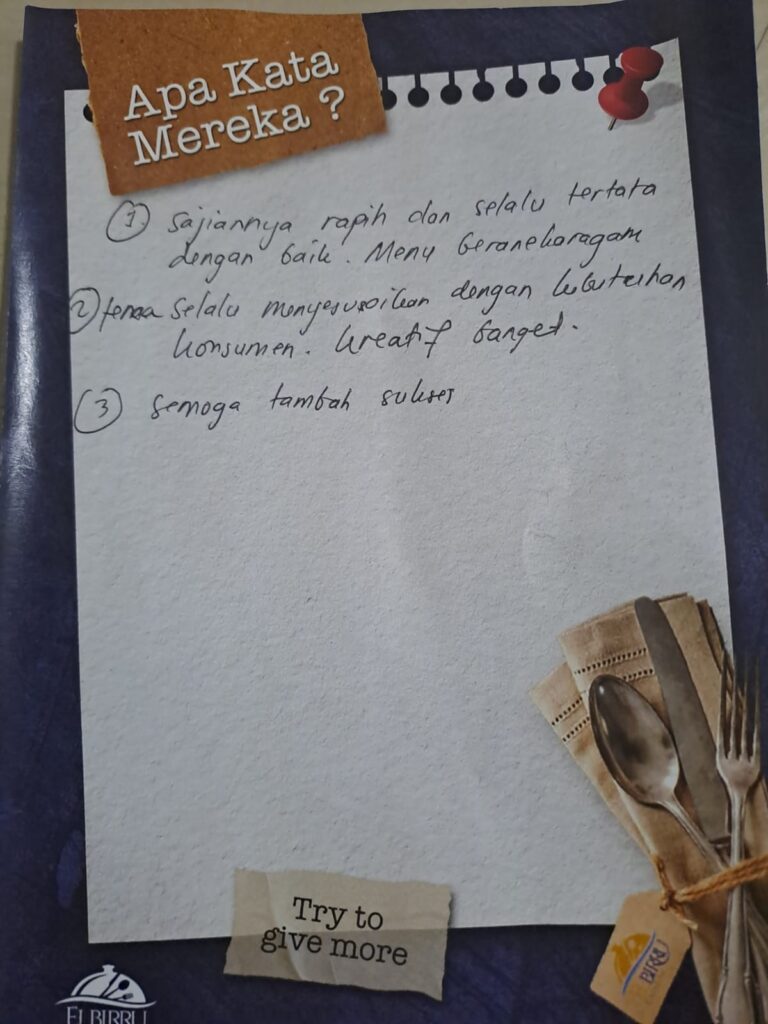 Apa Kata
Mereka ?
① Sajiannya rapih dan selalu tertata
dengan baik. Menu beranekaragam
② tema selalu menyesuaikan dengan kebutuhan
konsumen. kreatif banget.
③ Semoga tambah sukses
Try to
give more
BIRRU
ELBIRRU